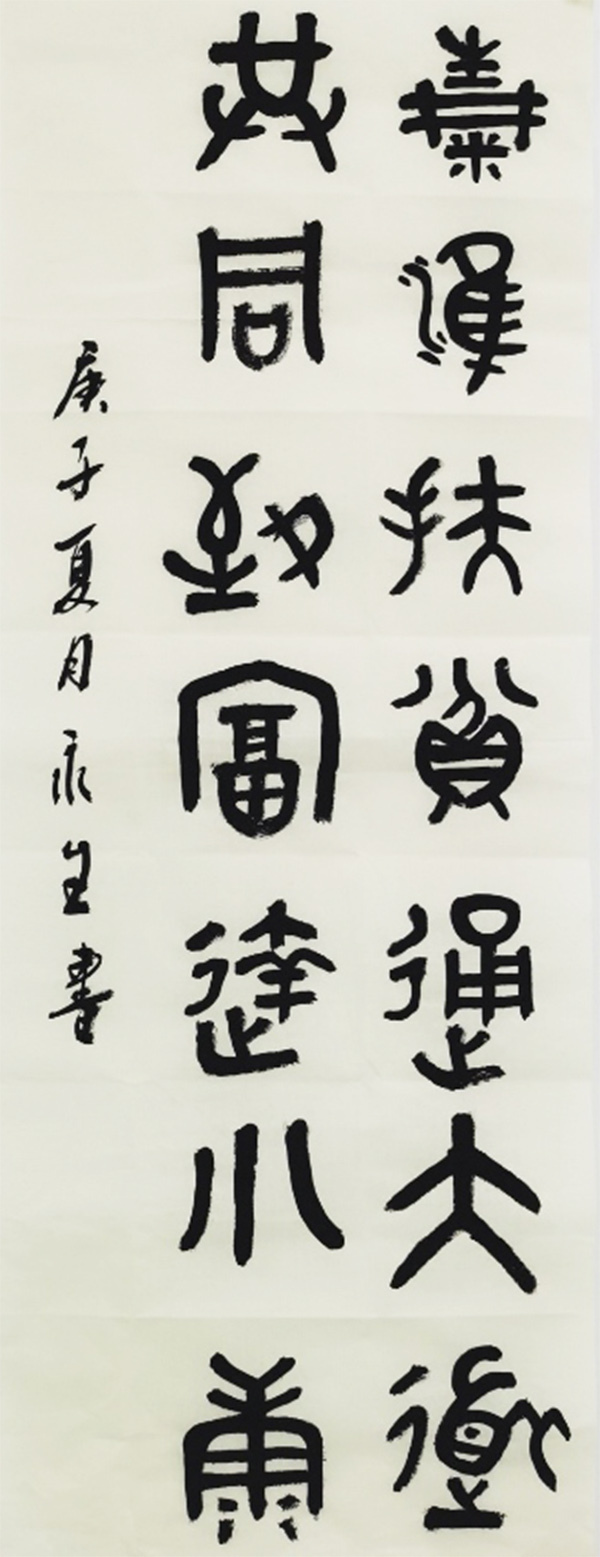 精準扶貧通大道
共同致富達小康
庚子夏月永生書